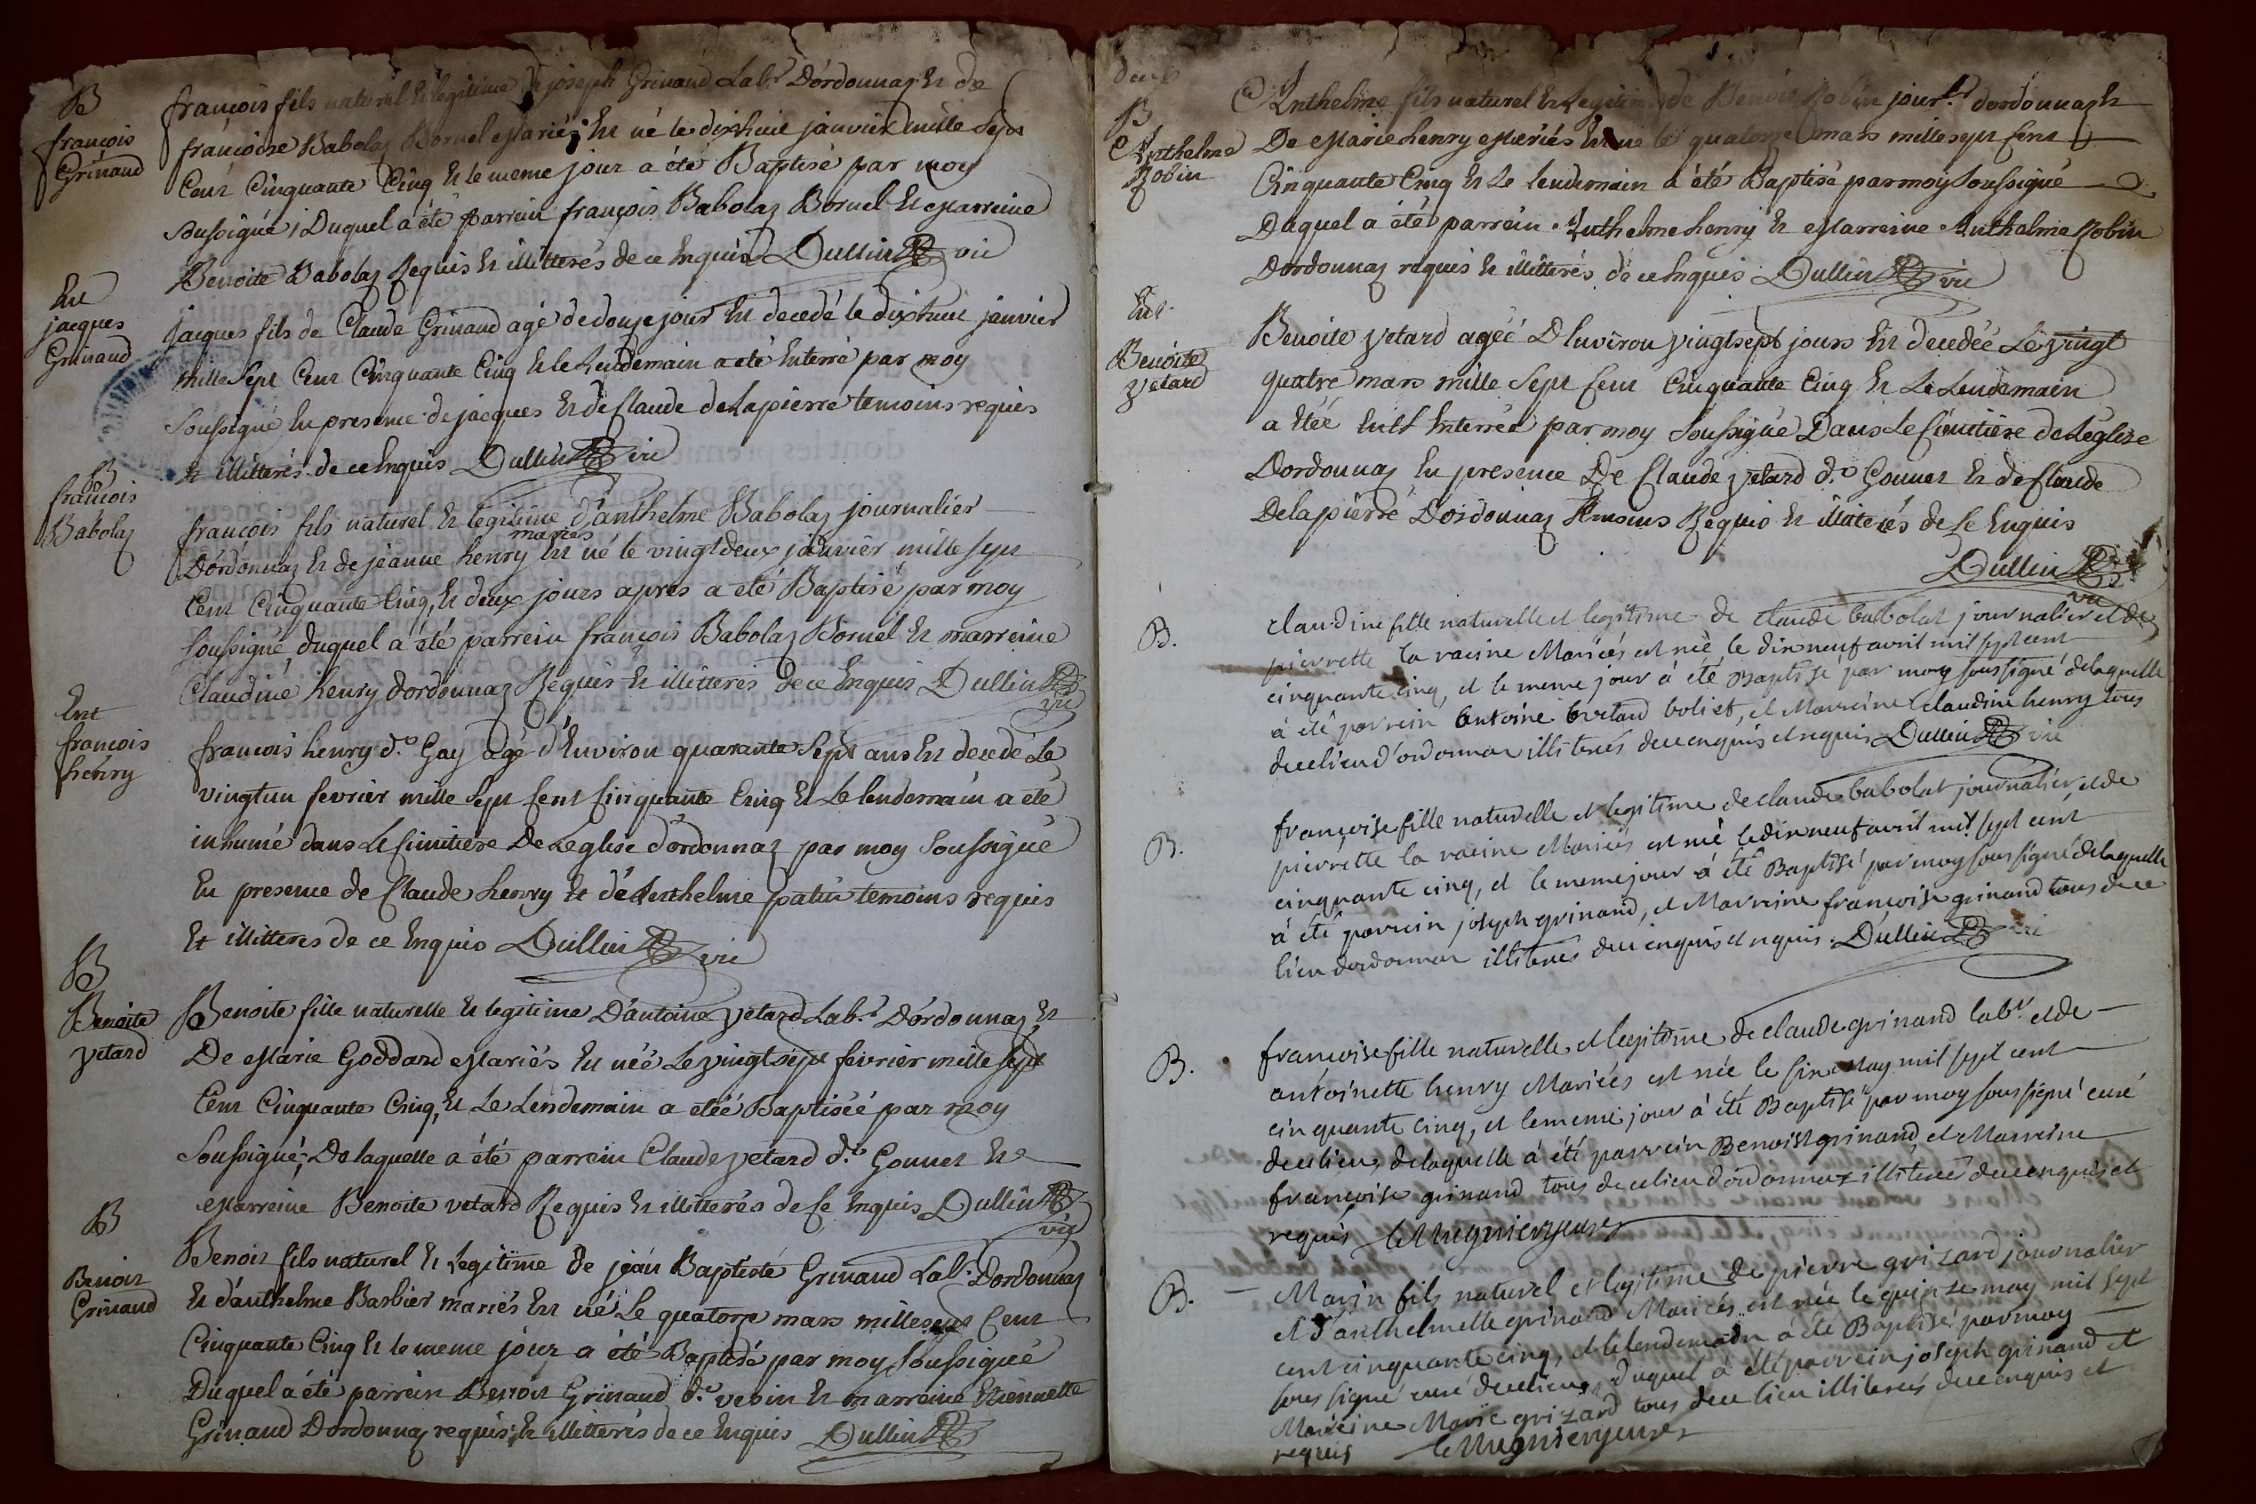 B
françois
Grinand
françois fils naturel et legitime de joseph Grinand Lab.r D'ordonnaz et de
francoise Babolaz Bornel Mariés est né le dixhuit janvier mille sept
Cent Cinquante Cinq et le meme jour a été Baptisé par moy
soussigné, Duquel a été parrein françois Babolaz Bornel et Marreine
Benoite Babolaz Requis et illitterés de ce Enquis Dullin vic
Ent
jacques
Grinand
jacques fils de Claude Grinand agé de douze jours est decedé le dixhuit janvier
mille sept Cent Cinquante Cinq et le Lendemain a été Enterré par moy
soussigné, En presence de jacques et de Claude delapierre temoins requis
et illitterés de ce Enquis Dullin vic
B
françois
Babolaz
françois fils naturel et legitime d'anthelme Babolaz journalier
D'ordonnaz et de jeanne henry mariés est né le vingtdeux janvier mille sept
Cent Cinquante Cinq, et deux jours apres a été Baptisé par moy
soussigné, duquel a été parrein françois Babolaz Bornel et marreine
Claudine henry dordonnaz Requis et illitterés de ce Enquis Dullin vic
Ent
francois
henry
francois henry d.t Gay agé d'Environ quarante Sept ans est decedé Le
vingtun fevrier mille Sept Cent Cinquante Cinq et Le lendemain a été
inhumé dans Le Cimitiere De Leglise d'ordonnaz par moy soussigné
En presence de Claude henry et de Anthelme patin temoins requis
Et illitteres de ce Enquis Dullin vic
B
Benoite
vetard
Benoite fille naturelle et legitime D'antoine vetard Lab.r D'ordonnaz et
De Marie Goddard Mariés est née Le vingtsept fevrier mille sept
Cent Cinquante Cinq, et Le Lendemain a étéé Baptiséé par moy
Soussigné; De laquelle a été parrein Claude vetard d.t Gonnet et
Marreine Benoite vetard Requis et illitterés de Ce Enquis Dullin vic
B
Benoit
Grinand
Benoit fils naturel et Legitime de jean Baptiste Grinand Lab.r Dordonnaz
et d'anthelme Barbier mariés est né Le quatorze mars mille sept Cent
Cinquante Cinq et le meme jour a été Baptisé par moy soussigné
Duquel a été parrein Benoit Grinand d.t vebin et marreine Etiennette
Grinand Dordonnaz requis et illitterés de ce Enquis Dullin
B
Anthelme
Robin
Anthelme fils naturel et Legitime de Benoit Robin jour.er dordonnaz et
De Marie henry Mariés est né le quatorze mars mille sept Cent
Cinquante Cinq et Le lendemain a été Baptisé par moy soussigné
Duquel a été parrein Anthelme henry et Marreine Anthelmie Robin
Dordonnaz requis et illitterés de ce Enquis Dullin vic
Ent
Benoite
vetard
Benoite vetard agéé D'Environ vingtsept jours est decedéé Le vingt
quatre mars mille Sept Cent Cinquante Cinq et Le Lendemain
a étéé Enterréé par moy soussigné Dans Le Cimitiere de Léglise
Dordonnaz En presence De Claude vetard d.t Gonnet et de Claude
Delapierre Dordonnaz temoins Requis et illiterés de Ce Enquis
Dullin
vic
B.
claudine fille naturelle et legitime de claude babolat journalier et de
pierrette la racine Mariés est née le dixneuf avril mil sept cent
cinquante cinq, et le meme jour à été Baptisé par moy soussigné delaquelle
à été parrein Antoine vetard boliet, et Marreine claudine henry tous
dece lieu d'ordonnax illiterés dece enquis et requis Dullin vic
B.
françoise fille naturelle et legitime de claude babolat journalier, et de
pierrette la racine Mariés est née le dixneuf avril mil sept cent
cinquante cinq, et le meme jour à été Baptisé par moy soussigné delaquelle
à été parrein joseph grinand, et Marreine françoise grinand tous de ce
lieu dordonnax illiterés dece enquis et requis. Dullin vic
B.
françoise fille naturelle et legitime de claude grinand lab.r et de
antoinette henry Mariés est née le six May mil sept cent
cinquante cinq, et le meme jour à été Baptisé par moy soussigné curé
dece lieu, delaquelle à été parrein Benoist grinand, et Marreine
françoise grinand tous de ce lieu d'ordonnax illiterés dece enquis et
requis
B.
Marin fils naturel et legitime de pierre grizard journalier
et d'anthelmette grinand Mariés est née le quinze may mil sept
cent cinquante cinq, et le lendemain à été Baptisé par moy
soussigné curé dece lieu, duquel à été parrein joseph grinand et
Marreine Marie grizard tous dece lieu illiterés dece enquis et
requis